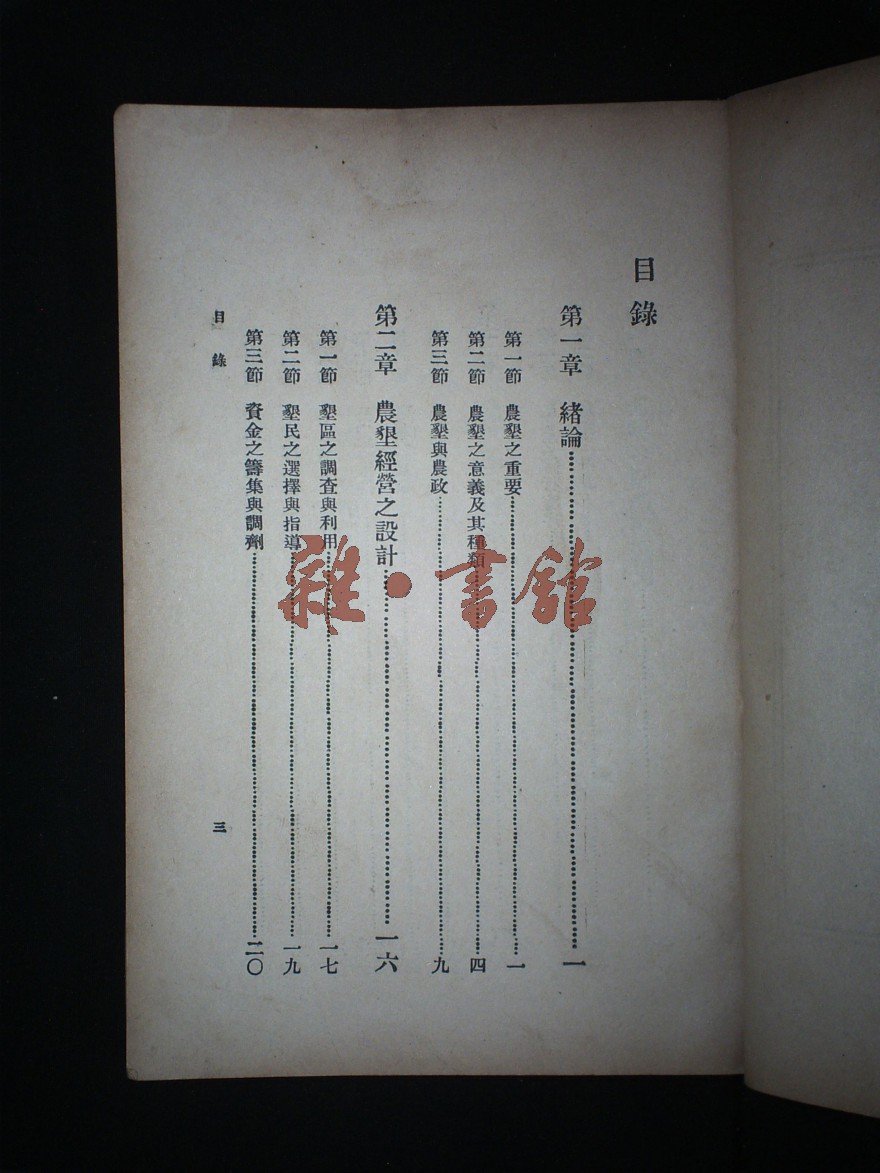 目錄
第一章 緒論…………一
第一節 農墾之重要…………一
第二節 農墾之意義及其種類…………四
第三節 農墾與農政…………九
第二章 農墾經營之設計…………一六
第一節 墾區之調查與利用…………一七
第二節 墾民之選擇與指導…………一九
第三節 資金之籌集與調劑…………二〇
目錄
三
雜·書館